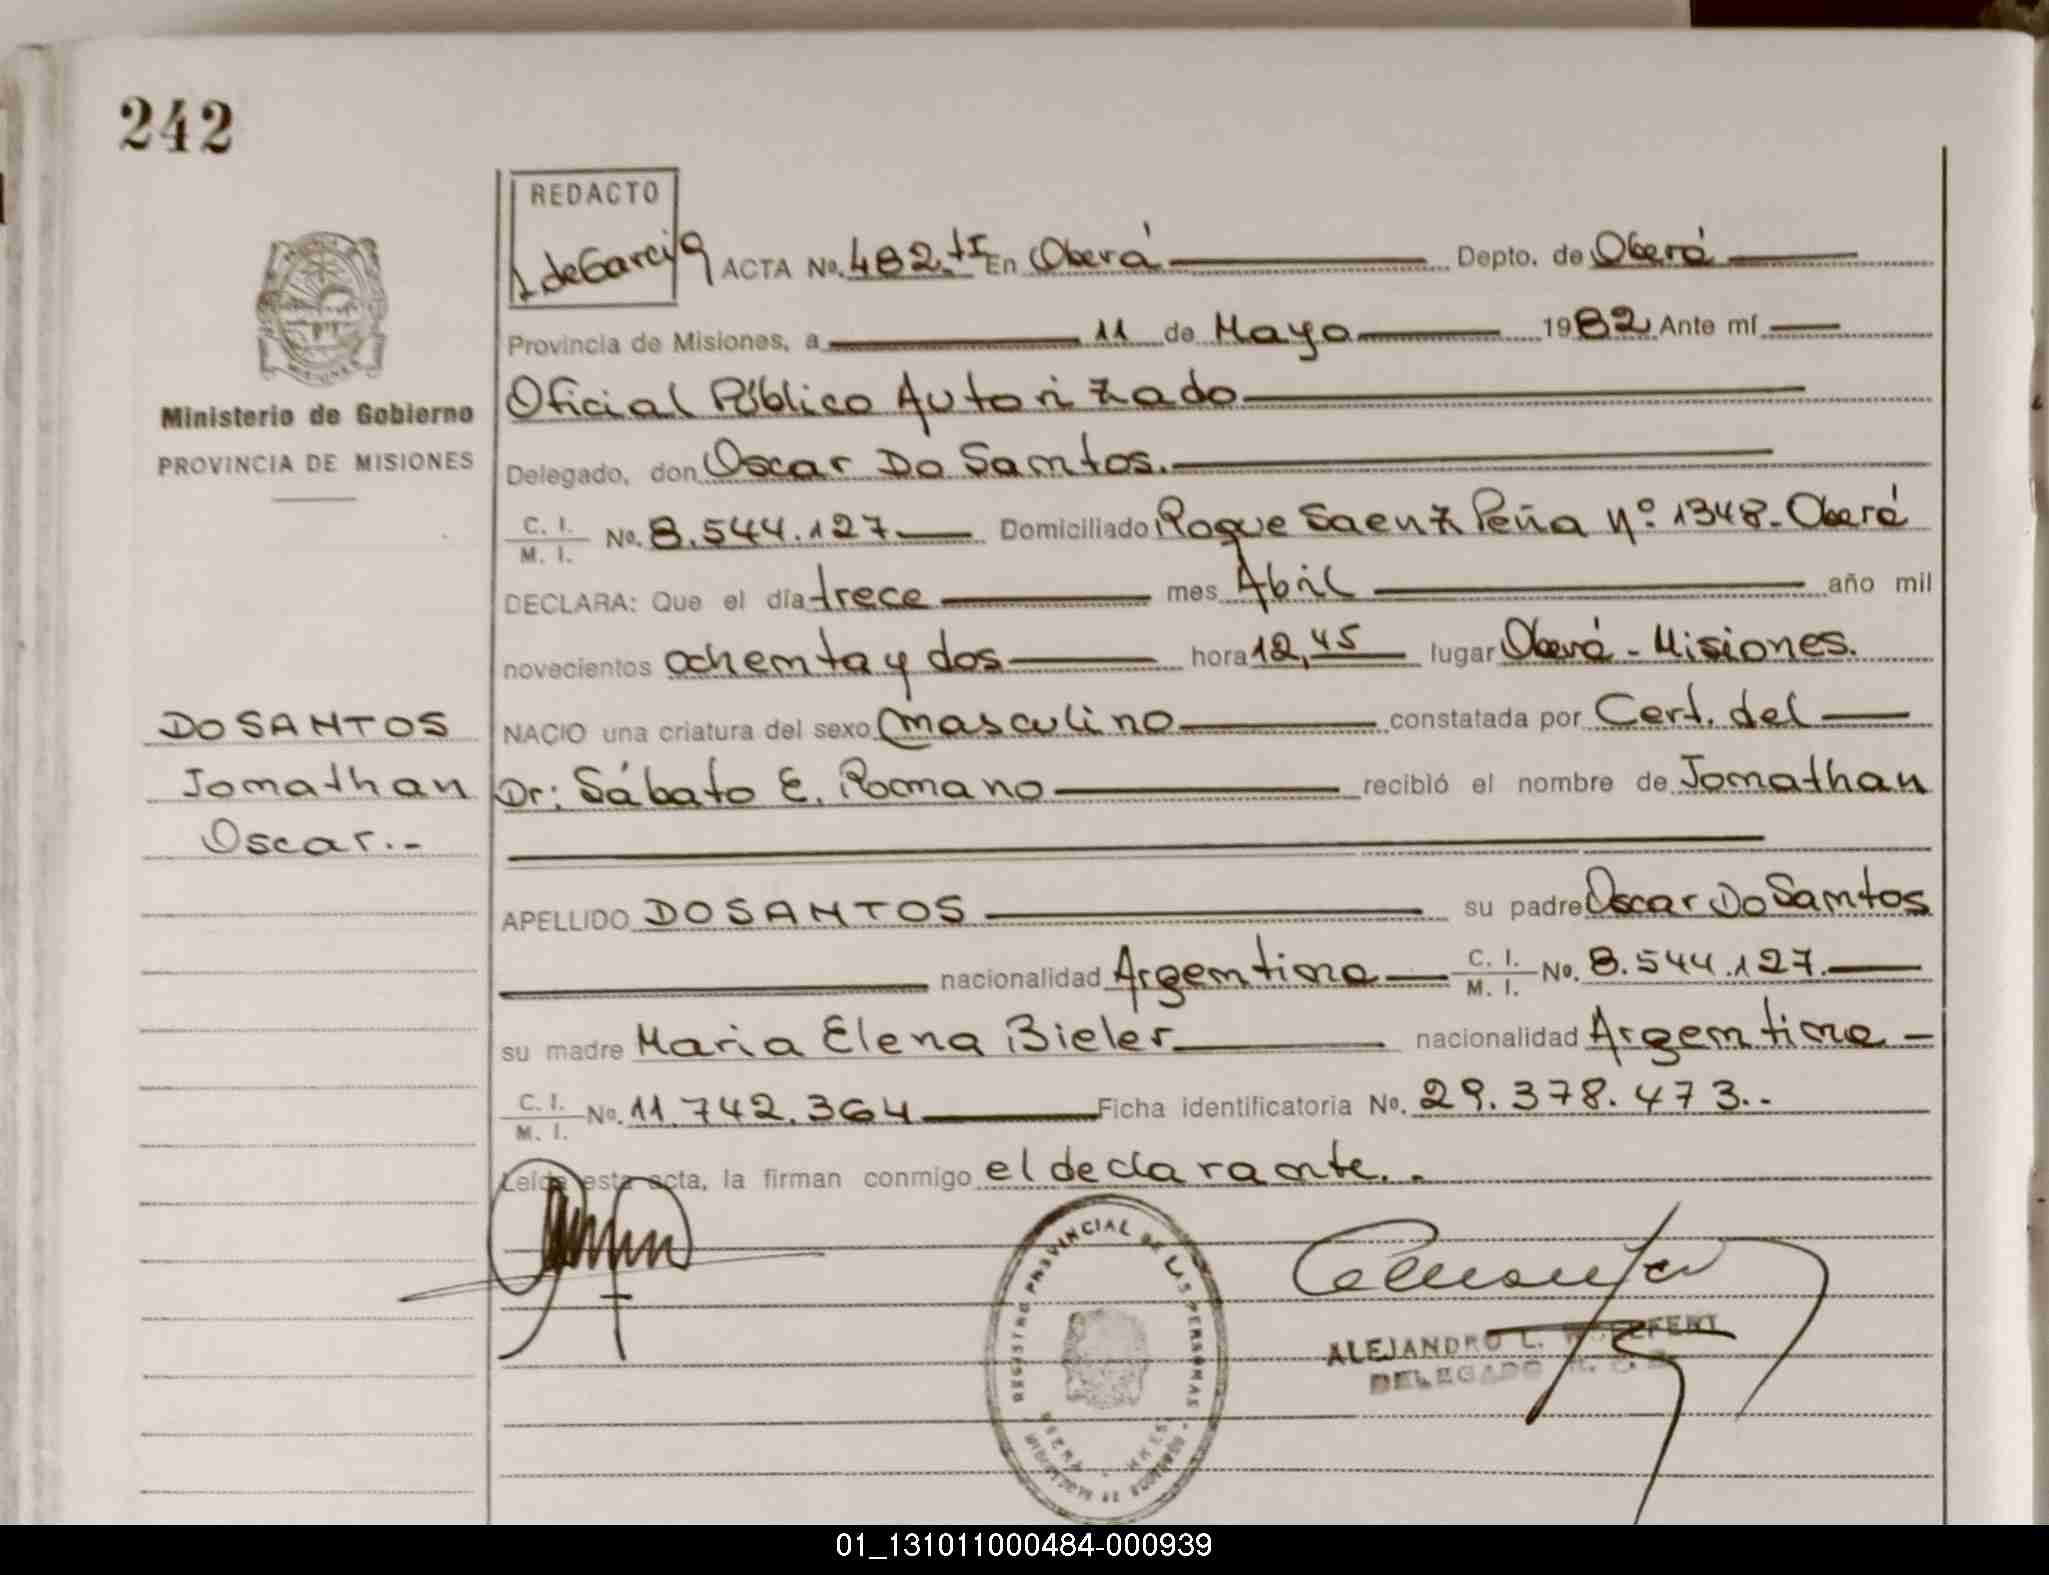 242
REDACTO
L deGarcia
ACTA No. 482.tI En Oberá Depto. de Oberá
Provincia de Misiones, a 11 de Mayo 1982 Ante mí
Ministerio de Gobierno
PROVINCIA DE MISIONES
Oficial Público Autorizado
Delegado, don Oscar Do Santos.
C. I.
M. I. No. 8.544.127 Domiciliado Roque Saenz Peña nº 1348. Oberá
DECLARA: Que el día trece mes Abril año mil
novecientos ochenta y dos hora 12,45 lugar Oberá - Misiones.
DO SANTOS
Jonathan
Oscar.-
NACIO una criatura del sexo masculino constatada por Cert. del
Dr: Sábato E. Romano recibió el nombre de Jonathan
APELLIDO DO SANTOS su padre Oscar Do Santos
nacionalidad Argentina C. I. M. I. No. 8.544.127.
su madre Maria Elena Bieler nacionalidad Argentina -
C. I.
M. I. No. 11.742.364 Ficha identificatoria No. 29.378.473..
Leída esta acta, la firman conmigo el declarante..
REGISTRO PROVINCIAL DE LAS PERSONAS
ALEJANDRO L.
DELEGADO
01_131011000484-000939